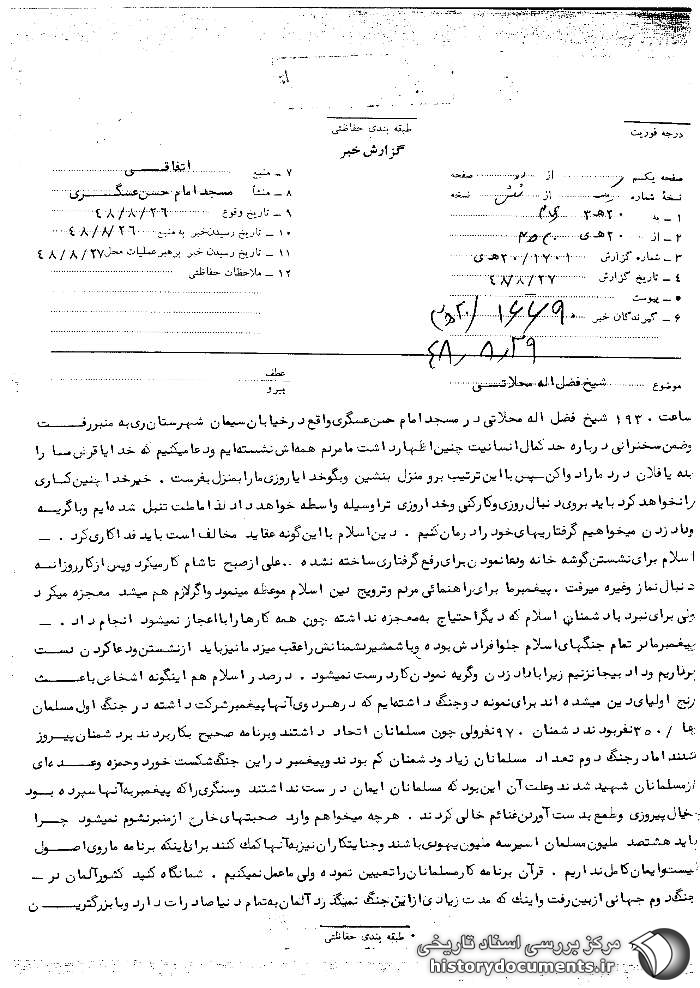 طبقه بندی حفاظتی
درجه فوریت
گزارش خبر
صفحه یکم از دو صفحه
نسخهٔ شماره از شش نسخه
۱ ـ به ۲۰هـ۳
۲ ـ از ۲۰هـ‌ی
۳ ـ شماره گزارش ۲۰/۱۷۰۱هـ‌ی
۴ ـ تاریخ گزارش ۴۸/۸/۲۷
۵ ـ پیوست
۶ ـ گیرندگان خبر
۷ ـ منبع اتفاقی
۸ ـ منشأ مسجد امام حسن عسگری
۹ ـ تاریخ وقوع ۴۸/۸/۲۶
۱۰ ـ تاریخ رسیدن خبر به منبع ۴۸/۸/۲۶
۱۱ ـ تاریخ رسیدن خبر برهبر عملیات محل ۴۸/۸/۲۷
۱۲ ـ ملاحظات حفاظتی
۴۸/۸/۲۹
موضوع شیخ فضل اله محلاتی
عطف
پیرو
ساعت ۱۹۳۰ شیخ فضل اله محلاتی در مسجد امام حسن عسگری واقع در خیابان سیمان شهرستان ری به منبر رفت
وضمن سخنرانی درباره حد کمال انسانیت چنین اظهار داشت ما مردم همه‌اش نشسته‌ایم ودعا میکنیم که خدایا قرض ما را
بده یا فلان درد ما را دوا کن ـ پس با این ترتیب برو منزل بنشین وبگو خدایا روزی ما را بمنزل بفرست . خیر خدا چنین کاری
را نخواهد کرد باید بروی دنبال روزی وکارکنی وخدا روزی ترا وسیله واسطه خواهد داد لذا ما ملت تنبل شده‌ایم وباگریه
وداد زدن میخواهیم گرفتاریهای خود را درمان کنیم . دین اسلام با این گونه عقاید مخالف است باید فداکاری کرد . ـ
اسلام برای نشستن گوشه خانه ودعا نمودن برای رفع گرفتاری ساخته نشده ۰۰ علی از صبح تا شام کار میکرد وپس از کار روزانه
دنبال نماز وغیره میرفت . پیغمبر ما برای راهنمائی مردم وترویج دین اسلام موعظه مینمود واگر لازم هم میشد معجزه میکرد
ولی برای نبرد با دشمنان اسلام که دیگر احتیاج به معجزه نداشته چون همه کارها را با اعجاز نمیشود انجام داد . ـ
پیغمبر ما در تمام جنگهای اسلام جلو افرادش بوده وبا شمشیر دشمنانش را عقب میزد ما نیز باید از نشستن ودعا کردن دست
برداریم وداد بیجا نزنیم زیرا با داد زدن وگریه نمودن کار درست نمیشود . در صدر اسلام هم اینگونه اشخاص باعث
رنج اولیای دین میشده اند برای نمونه دو جنگ داشته‌ایم که در هر دوی آنها پیغمبر شرکت داشته در جنگ اول مسلمان
ها /۳۵۰ نفر بودند دشمنان ۹۷۰ نفر ولی چون مسلمانان اتحاد داشتند وبرنامه صحیح بکار بردند بر دشمنان پیروز
شدند اما در جنگ دوم تعداد مسلمانان زیاد ودشمنان کم بودند وپیغمبر در این جنگ شکست خورد وحمزه وعده‌ای
از مسلمانان شهید شدند وعلت آن این بود که مسلمانان ایمان درست نداشتند وسنگری را که پیغمبر به آنها سپرده بود
بخیال پیروزی وطمع بدست آوردن غنائم خالی کردند . هر چه میخواهم وارد صحبتهای خارج از منبر نشوم نمیشود چرا
باید هشتصد ملیون مسلمان اسیر سه ملیون یهودی باشند وجنایتکاران نیز به آنها کمک کنند برای اینکه برنامه ما روی اصول
نیست وایمان کامل نداریم . قرآن برنامه کار مسلمانان را تعیین نموده ولی ما عمل نمیکنیم . شما نگاه کنید کشور آلمان در ـ
جنگ دوم جهانی از بین رفت واینک که مدت زیادی از این جنگ نمیگذرد آلمان به تمام دنیا صادرات دارد وبا بزرگترین
طبقه بندی حفاظتی
مرکز بررسی اسناد تاریخی
historydocuments.ir